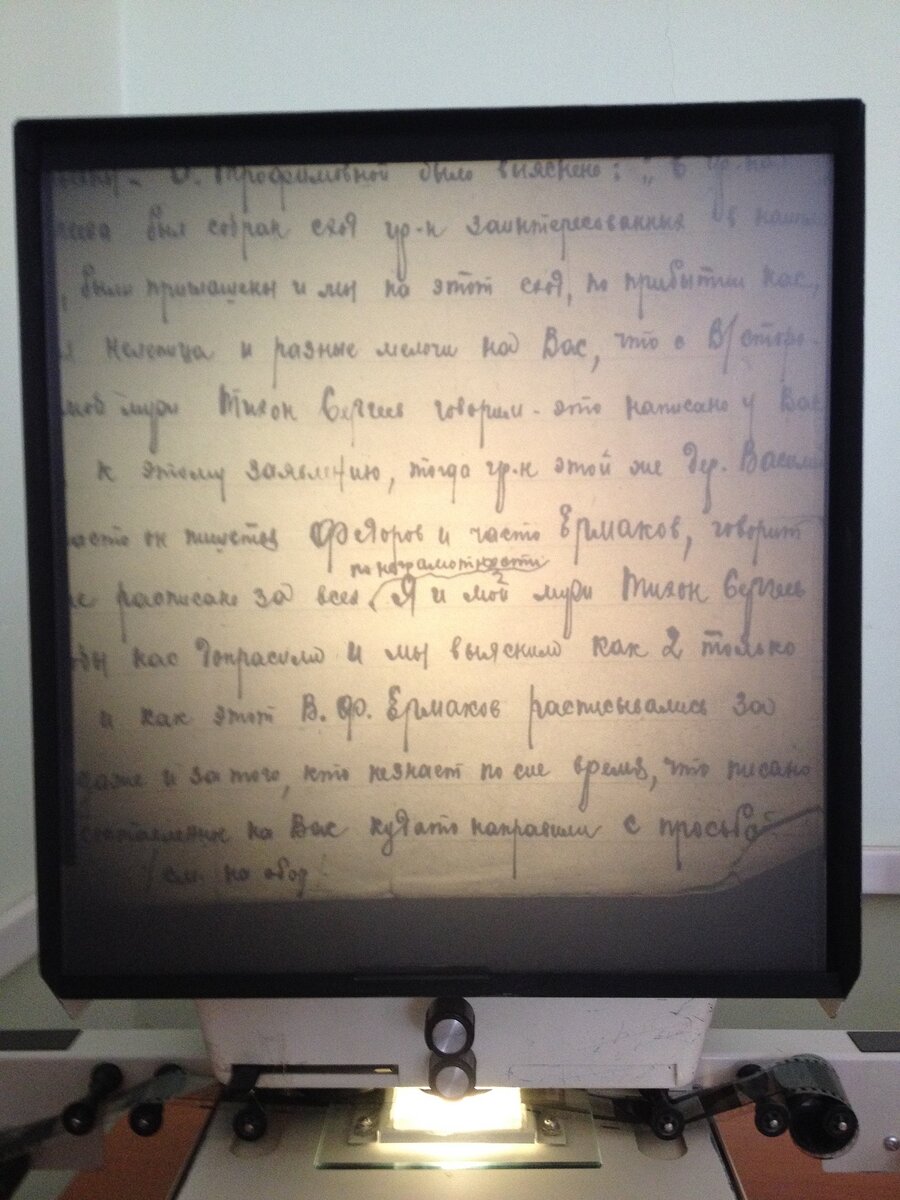 О. Трофимовной было выяснено: „в
был собран сход гр-н заинтересованных в наши
, были приглашены и мы на этот сход, по прибытии нас,
нелепица и разные мелочи над Вас, что с В/сторо-
муж Тихон Сергеев говорил - это написано у Вас
к этому заявлению, тогда гр-н этой же дер. Васили
он пишется Федоров и часто Ермаков, говорит
по неграмотности
расписано за всех Я и мой муж Тихон Сергеев
нас допрасили и мы выяснили как 2 только
и как этот В. Ф. Ермаков расписывались за
даже и за того, кто незнает по сие время, что писано
на Вас кудато направили с просьбой
см. на обор